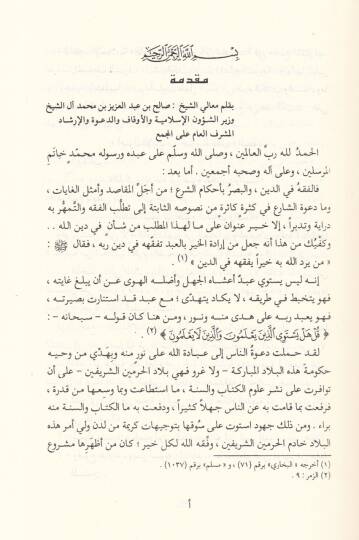 بسم الله الرحمن الرحيم
مقدمة
بقلم معالي الشيخ : صالح بن عبد العزيز بن محمد آل الشيخ
وزير الشؤون الإسلامية والأوقاف والدعوة والإرشاد
المشرف العام على المجمع
الحمدُ لله ربِّ العالمين ، وصلى الله وسلّم على عبده ورسوله محمدٍ خاتَمِ
المرسلين ، وعلى آله وصحبه أجمعين . أما بعد :
فالفقهُ في الدين ، والبصرُ بأحكام الشرع ؛ من أجَلِّ المقاصد وأمثل الغايات ،
وما دعوة الشارع في كثرةٍ كاثرةٍ من نصوصه الثابتة إلى تطلُّب الفقه والتمهُّر به
دراية وتدبراً ، إلا خير عنوان على ما لهذا المطلب من شأنٍ في دين الله . .
وكفيُّك من هذا أنه جعل من إرادة الخير بالعبد تفقّهه في دين ربه ، فقال ﷺ :
« من يرد الله به خيراً يفقهه في الدين » (١) .
إنه ليس يستوي عبدٌ أعشاه الجهل وأضلـه الهوى عن أن يبلغ غايته ،
فهو يتخبط في طريقه ، لا يكاد يهتدى ؛ مع عبد قد استنارت بصيرته ،
فهو يعبد ربه على هدى منه ونور ، ومن هنا كان قوله - سبحانه - :
﴿ قُلْ هَلْ يَسْتَوِي الَّذِينَ يَعْلَمُونَ وَالَّذِينَ لَا يَعْلَمُونَ ﴾ (٢) .
لقد حملت دعوةُ الناس إلى عبادة الله على نورٍ منه وبهَدْي من وحيه
حكومةَ هذه البلاد المباركة – ولا غرو فهي بلاد الحرمين الشريفين – على أن
توافرت على نشر علوم الكتاب والسنة ، ما استطاعت وبما وسعها من قدرة ،
فرفعت بما قامت به عن الناس جهلاً كثيراً ، ودفعت به ما الكتاب والسنة منه
براء . ومن ذلك جهود استوت على سُوقها بتوجيهات كريمة من لدن ولي أمر هذه
البلاد خادم الحرمين الشريفين ، وفَّقه الله لكل خير ؛ كان من أظهَرِها مشروع
(١) أخرجه « البخاري » برقم (٧١) ، و « مسلم » برقم (١٠٣٧) .
(٢) الزمر : ٩ .
أ